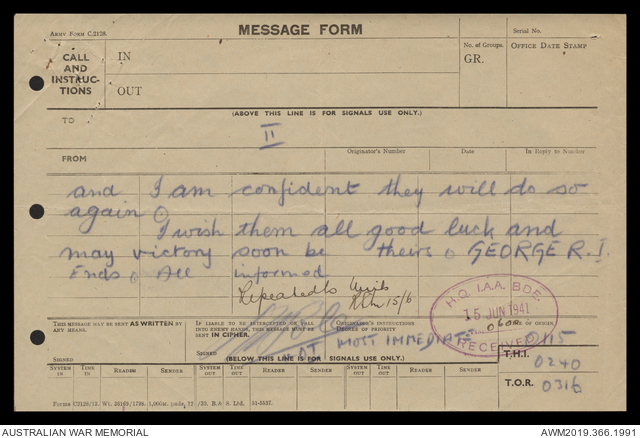 ARMY FORM C.2128.
MESSAGE FORM
Serial No.
CALL AND INSTRUC- TIONS
IN
OUT
No. of Groups.
GR.
OFFICE DATE STAMP
(ABOVE THIS LINE IS FOR SIGNALS USE ONLY.)
TO
II
FROM
Originator's Number
Date
In Reply to Number
and I am confident they will do so
again
I wish them all good luck and
may victory soon be theirs o GEORGE R.I.
Ends o All informed
Repeated to Units
15/6
H.Q. 1 A.A. BDE.
15 JUN 1941
0600
RECEIVED
THIS MESSAGE MAY BE SENT AS WRITTEN BY ANY MEANS.
IF LIABLE TO BE INTERCEPTED OR FALL INTO ENEMY HANDS, THIS MESSAGE MUST BE SENT IN CIPHER.
ORIGINATOR'S INSTRUCTIONS DEGREE OF PRIORITY
OF ORIGIN
MOST IMMEDIATE
0115
SIGNED
SIGNED
(BELOW THIS LINE IS FOR SIGNALS USE ONLY.)
T.H.I.
0240
SYSTEM IN
TIME IN
READER
SENDER
SYSTEM OUT
TIME OUT
READER
SENDER
SYSTEM OUT
TIME OUT
READER
SENDER
T.O.R.
0316
AUSTRALIAN WAR MEMORIAL
AWM2019.366.1991